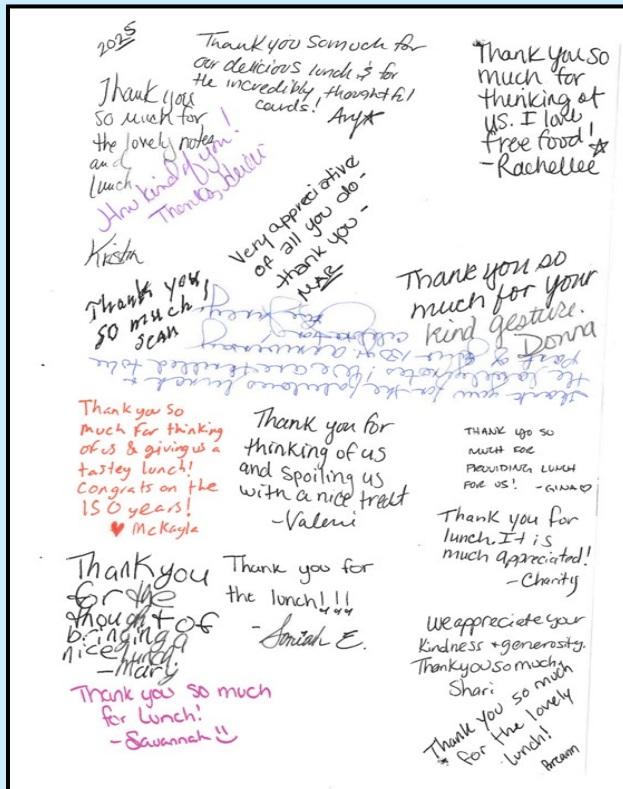 2025
Thank you so much for
our delicious lunch & for
the incredibly thoughtful
cards!
Thank you so
much for
thinking of
us. I love
free food!
-Rachellee
Thank you
so much for
the lovely notes
and
lunch
Kristin
How kind of you!
Thanks,
Very appreciative
of all you do-
thank you-
MAR
Thank you
so much,
SEAN
Thank you so
much for your
kind gesture.
Donna
Thank you for the fabulous lunch &
the lovely notes! We are thrilled to be
part of your 150th anniversary
celebration!
Thank you so
much for thinking
of us & giving us a
tastey lunch!
Congrats on the
150 years!
♥ McKayla
Thank you for
thinking of us
and spoiling us
with a nice treat
-Valeri
THANK YOU SO
MUCH FOR
PROVIDING LUNCH
FOR US! -GINA♡
Thank you for
lunch. It is
much appreciated!
-Charity
Thank you
for the
thought of
bringing a
nice lunch.
-Mary
Thank you for
the lunch!!!
We appreciate your
Kindness + generosity.
Thank you so much,
Shari
Thank you so much
for Lunch!
-Savannah
Thank you so much
for the lovely
lunch!